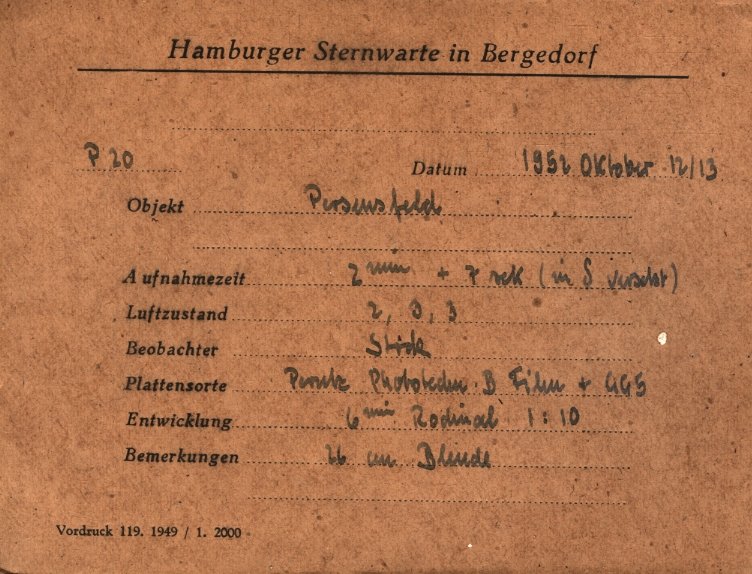 Hamburger Sternwarte in Bergedorf
P 20
Datum 1952 Oktober 12/13
Objekt Perseusfeld
Aufnahmezeit 2 min + 7 sek (in δ versetzt)
Luftzustand 2, 3, 3
Beobachter Stock
Plattensorte Perutz Phototechn. B Film + GG5
Entwicklung 6 min Rodinal 1:10
Bemerkungen 26 cm Blende
Vordruck 119. 1949 / 1. 2000